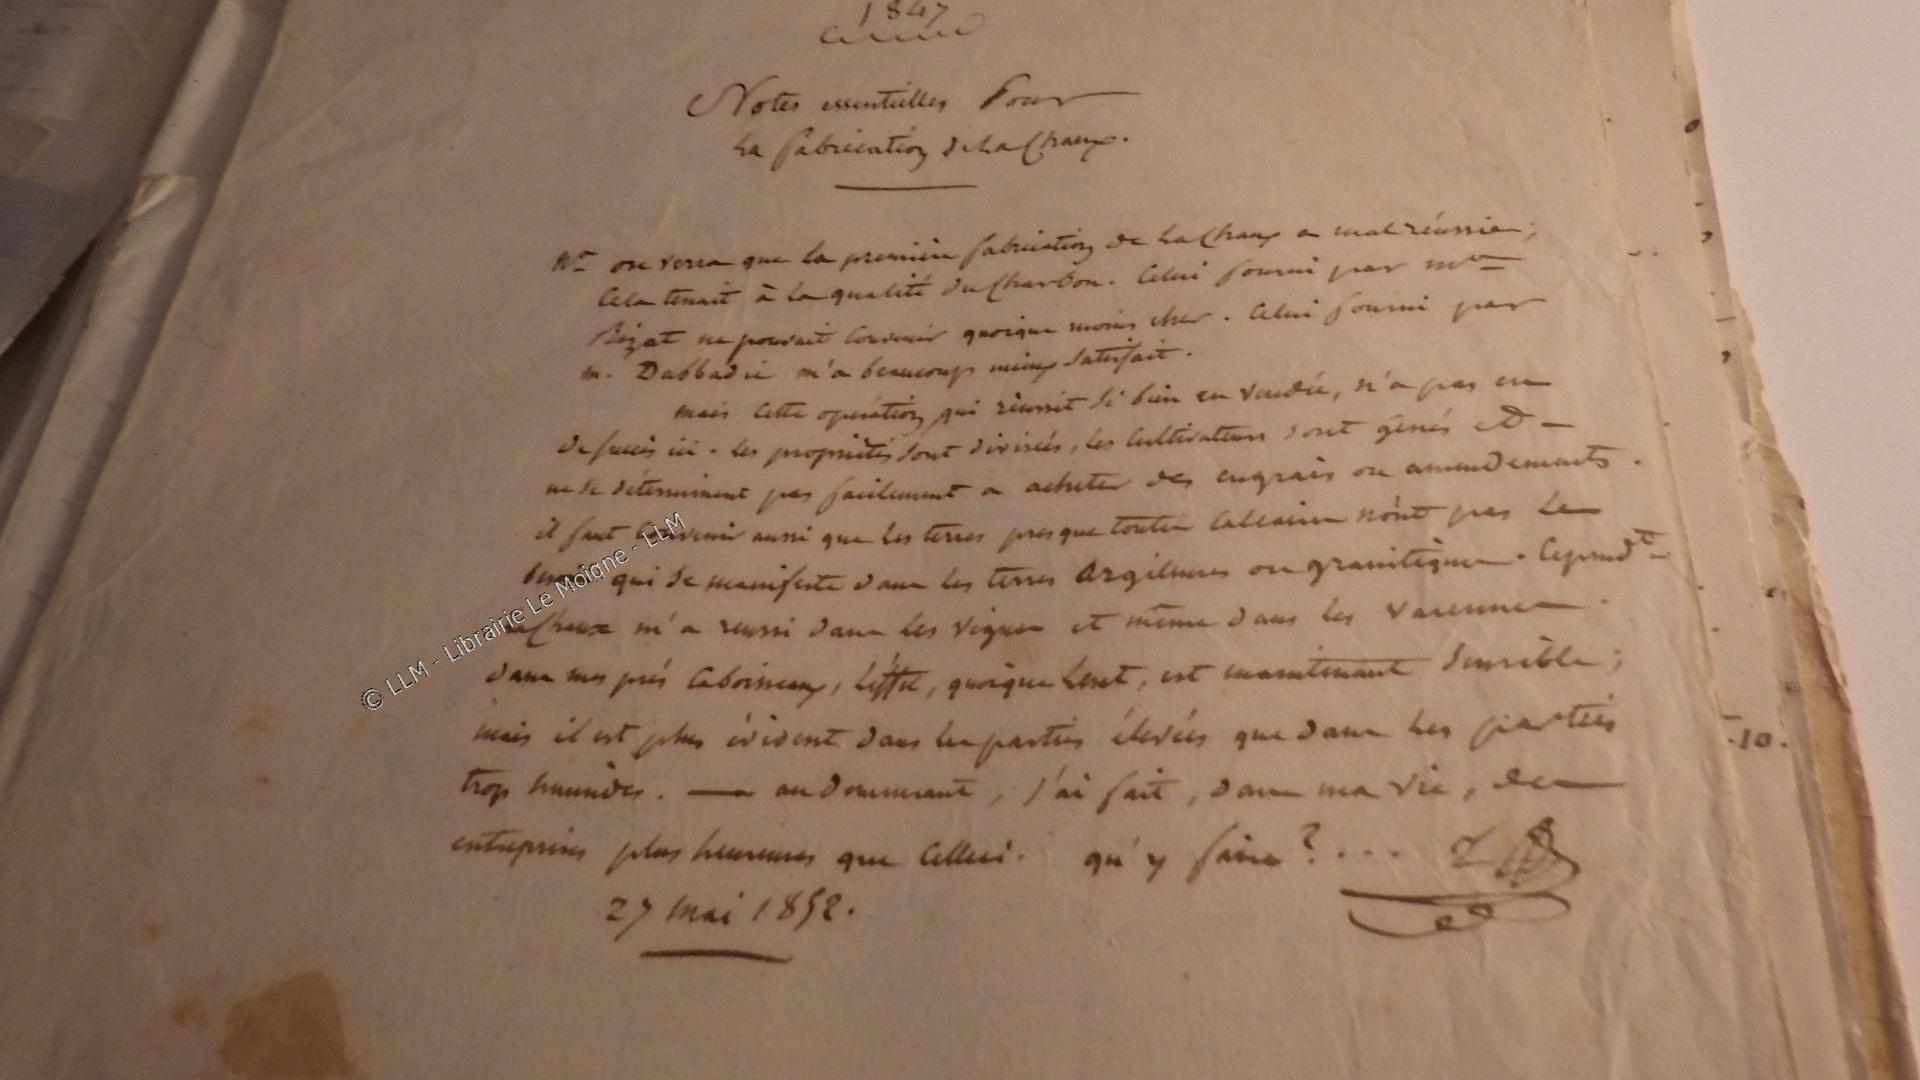 1847
Notes essentielles pour
la fabrication de la Chaux.
Nta on verra que la première fabrication de la Chaux a mal réussie;
Cela tenait à la qualité du Charbon. Celui fourni par mr
Rizat ne pouvait Convenir quoique moins cher. Celui fourni par
m. Dabbadie m'a beaucoup mieux satisfait.
mais Cette opération qui réussit si bien en vendée, n'a pas eu
de succès ici. les propriétés sont divisées, les Cultivateurs sont gênés et
ne se déterminent pas facilement a acheter des engrais ou amendements.
il faut Convenir aussi que les terres presque toutes Calcaires n'ont pas le
besoin qui se manifeste dans les terres Argileuses ou granitiques. Cependt
la Chaux m'a reussi dans les vignes et même dans les varennes.
dans mes prés Caboisseaux, l'éffet, quoique lent, est maintenant sensible;
mais il est plus évident dans les parties élevées que dans les parties
trop humides. — au demeurant, j'ai fait, dans ma vie, des
entreprises plus heureuses que Celleci. qu'y faire?...
27 mai 1852.
10.
© LLM - Librairie Le Moigne - LLM